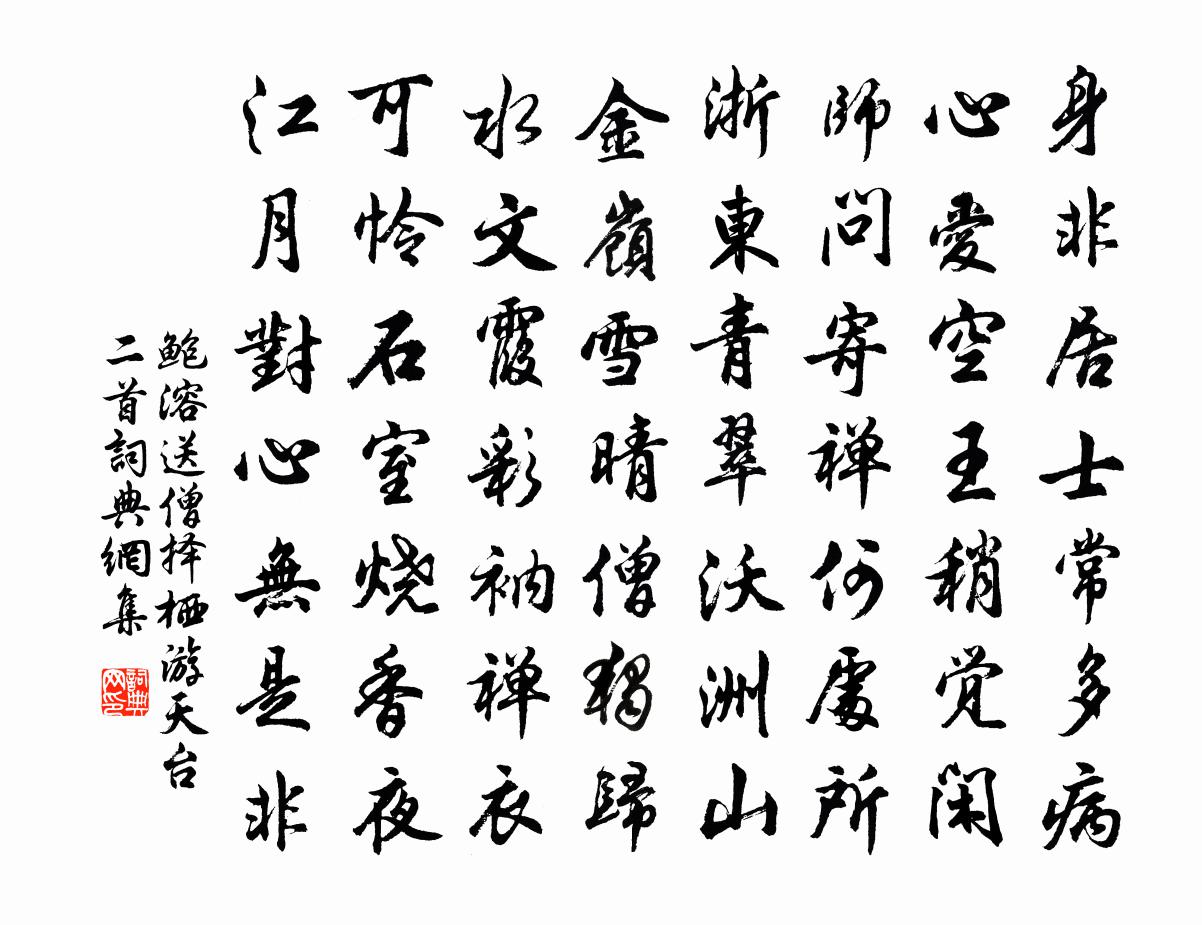 身非居士常多病
心愛空王稍觉闲
師問寄禅何處所
浙東青翠沃洲山
金嶺雪晴僧獨歸
水文霞彩衲禅衣
可怜石室烧香夜
江月對心無是非
鲍溶送僧择栖游天台
二首詞典網集
詞典
网印